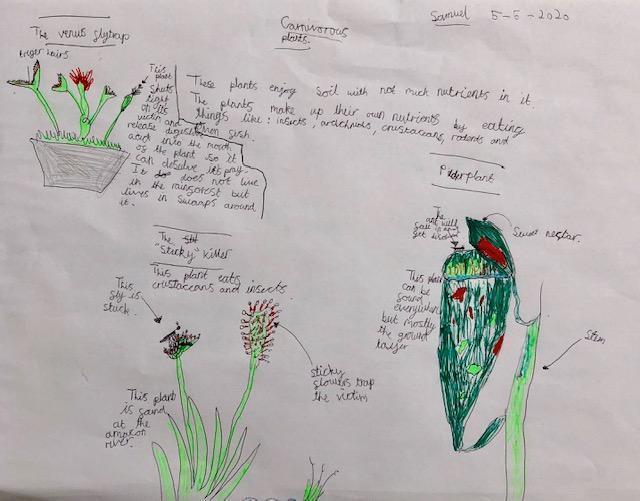 Samuel 5-5-2020
Carnivorous
plants.
The venus flytrap
triger hairs
This
plant
shuts
tight
on its
victim and
release digustiv
acid into the mouth
of the plant so it
can desolve its pray.
It does not live
in the rainforest but
lives in swamps around
it.
These plants enjoy soil with not much nutrients in it.
The plants make up their own nutrients by eating
things like: insects, archnids, crustaceans, rodents and
even fish.
The
"Sticky" killer
This plant eats
crustaceans and insects.
This
fly is
stuck.
sticky
flowers trap
the victim
This plant
is found
at the
amazon
river.
plant
The
ant will
fall in and
get
Sweet nectar.
This plant
can be
found
everywhere
but mostly
the ground
layer
Stem